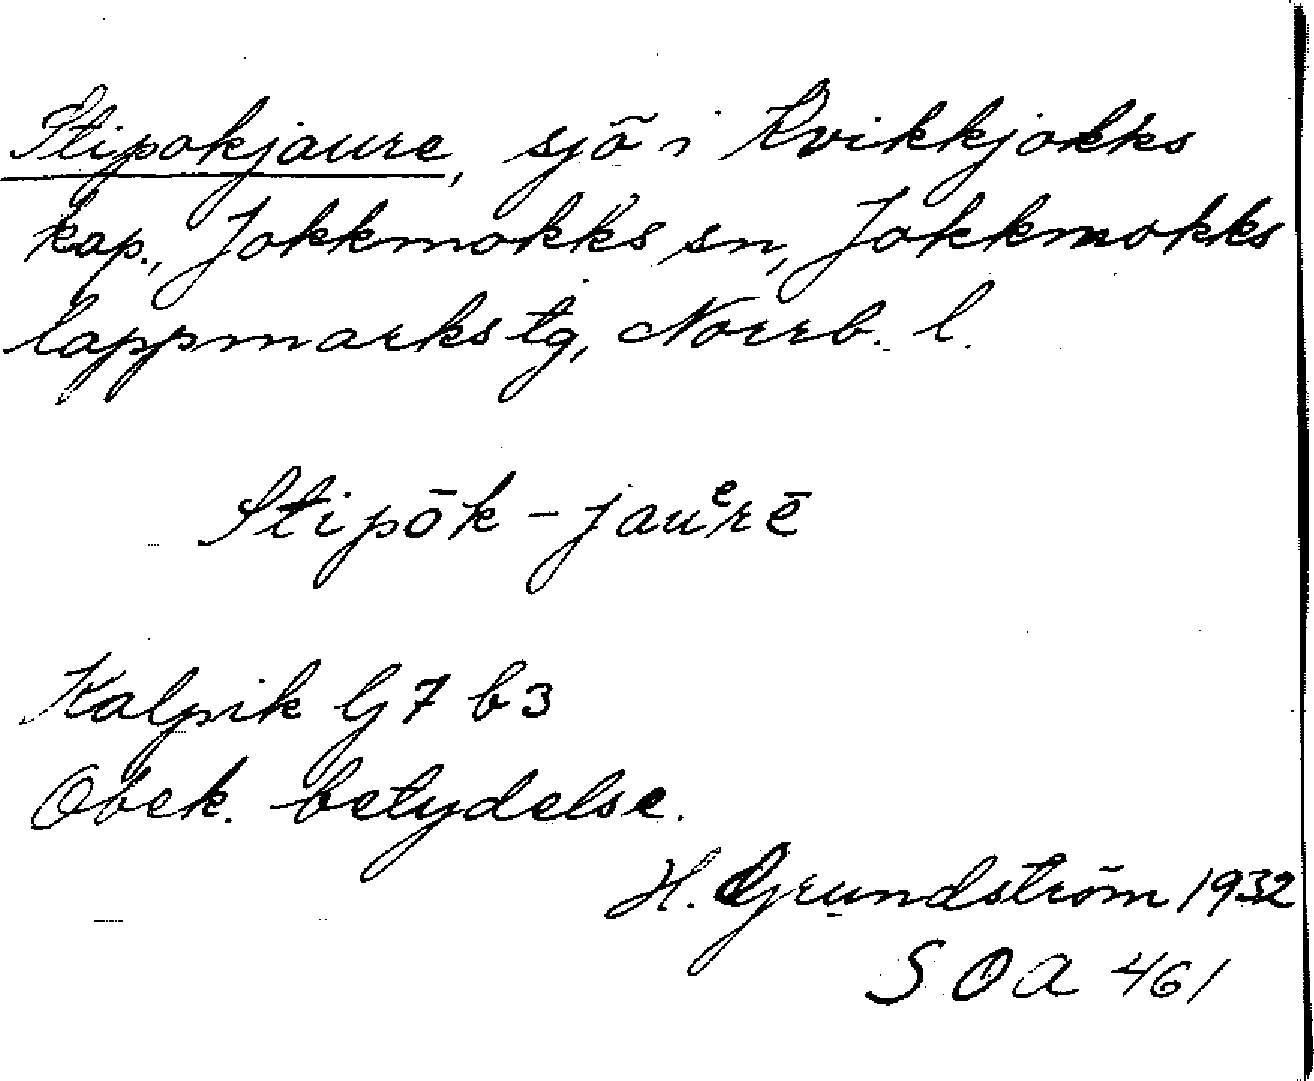 Stipokjaure, sjö i Kvikkjokks
kap., Jokkmokks sn, Jokkmokks
lappmarks tg, Norrb. l.
Stipōk-jauᵉrē
Kalpvik G7 b3
Obek. betydelse.
H. Grundström 1932
SOA 461